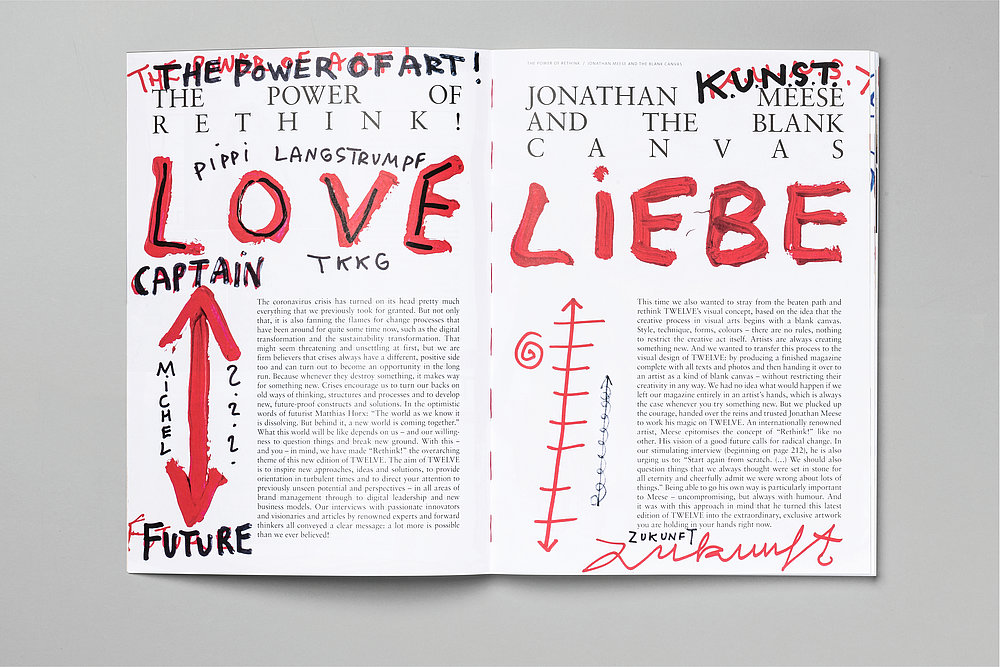 THE POWER OF ART!
THE POWER OF ART!
THE POWER OF
RETHINK!
PIPPI LANGSTRUMPF
LOVE
TKKG
CAPTAIN
MICHEL
???
FUTURE
The coronavirus crisis has turned on its head pretty much
everything that we previously took for granted. But not only
that, it is also fanning the flames for change processes that
have been around for quite some time now, such as the digital
transformation and the sustainability transformation. That
might seem threatening and unsettling at first, but we are
firm believers that crises always have a different, positive side
too and can turn out to become an opportunity in the long
run. Because whenever they destroy something, it makes way
for something new. Crises encourage us to turn our backs on
old ways of thinking, structures and processes and to develop
new, future-proof constructs and solutions. In the optimistic
words of futurist Matthias Horx: “The world as we know it
is dissolving. But behind it, a new world is coming together.”
What this world will be like depends on us – and our willing-
ness to question things and break new ground. With this –
and you – in mind, we have made “Rethink!” the overarching
theme of this new edition of TWELVE. The aim of TWELVE
is to inspire new approaches, ideas and solutions, to provide
orientation in turbulent times and to direct your attention to
previously unseen potential and perspectives – in all areas of
brand management through to digital leadership and new
business models. Our interviews with passionate innovators
and visionaries and articles by renowned experts and forward
thinkers all conveyed a clear message: a lot more is possible
than we ever believed!
THE POWER OF RETHINK / JONATHAN MEESE AND THE BLANK CANVAS
K.U.N.S.T.
JONATHAN MEESE
AND THE BLANK
CANVAS
LiEBE
This time we also wanted to stray from the beaten path and
rethink TWELVE’s visual concept, based on the idea that the
creative process in visual arts begins with a blank canvas.
Style, technique, forms, colours – there are no rules, nothing
to restrict the creative act itself. Artists are always creating
something new. And we wanted to transfer this process to the
visual design of TWELVE: by producing a finished magazine
complete with all texts and photos and then handing it over to
an artist as a kind of blank canvas – without restricting their
creativity in any way. We had no idea what would happen if we
left our magazine entirely in an artist’s hands, which is always
the case whenever you try something new. But we plucked up
the courage, handed over the reins and trusted Jonathan Meese
to work his magic on TWELVE. An internationally renowned
artist, Meese epitomises the concept of “Rethink!” like no
other. His vision of a good future calls for radical change. In
our stimulating interview (beginning on page 212), he is also
urging us to: “Start again from scratch. (...) We should also
question things that we always thought were set in stone for
all eternity and cheerfully admit we were wrong about lots of
things.” Being able to go his own way is particularly important
to Meese – uncompromising, but always with humour. And
it was with this approach in mind that he turned this latest
edition of TWELVE into the extraordinary, exclusive artwork
you are holding in your hands right now.
ZUKUNFT
Zukunft